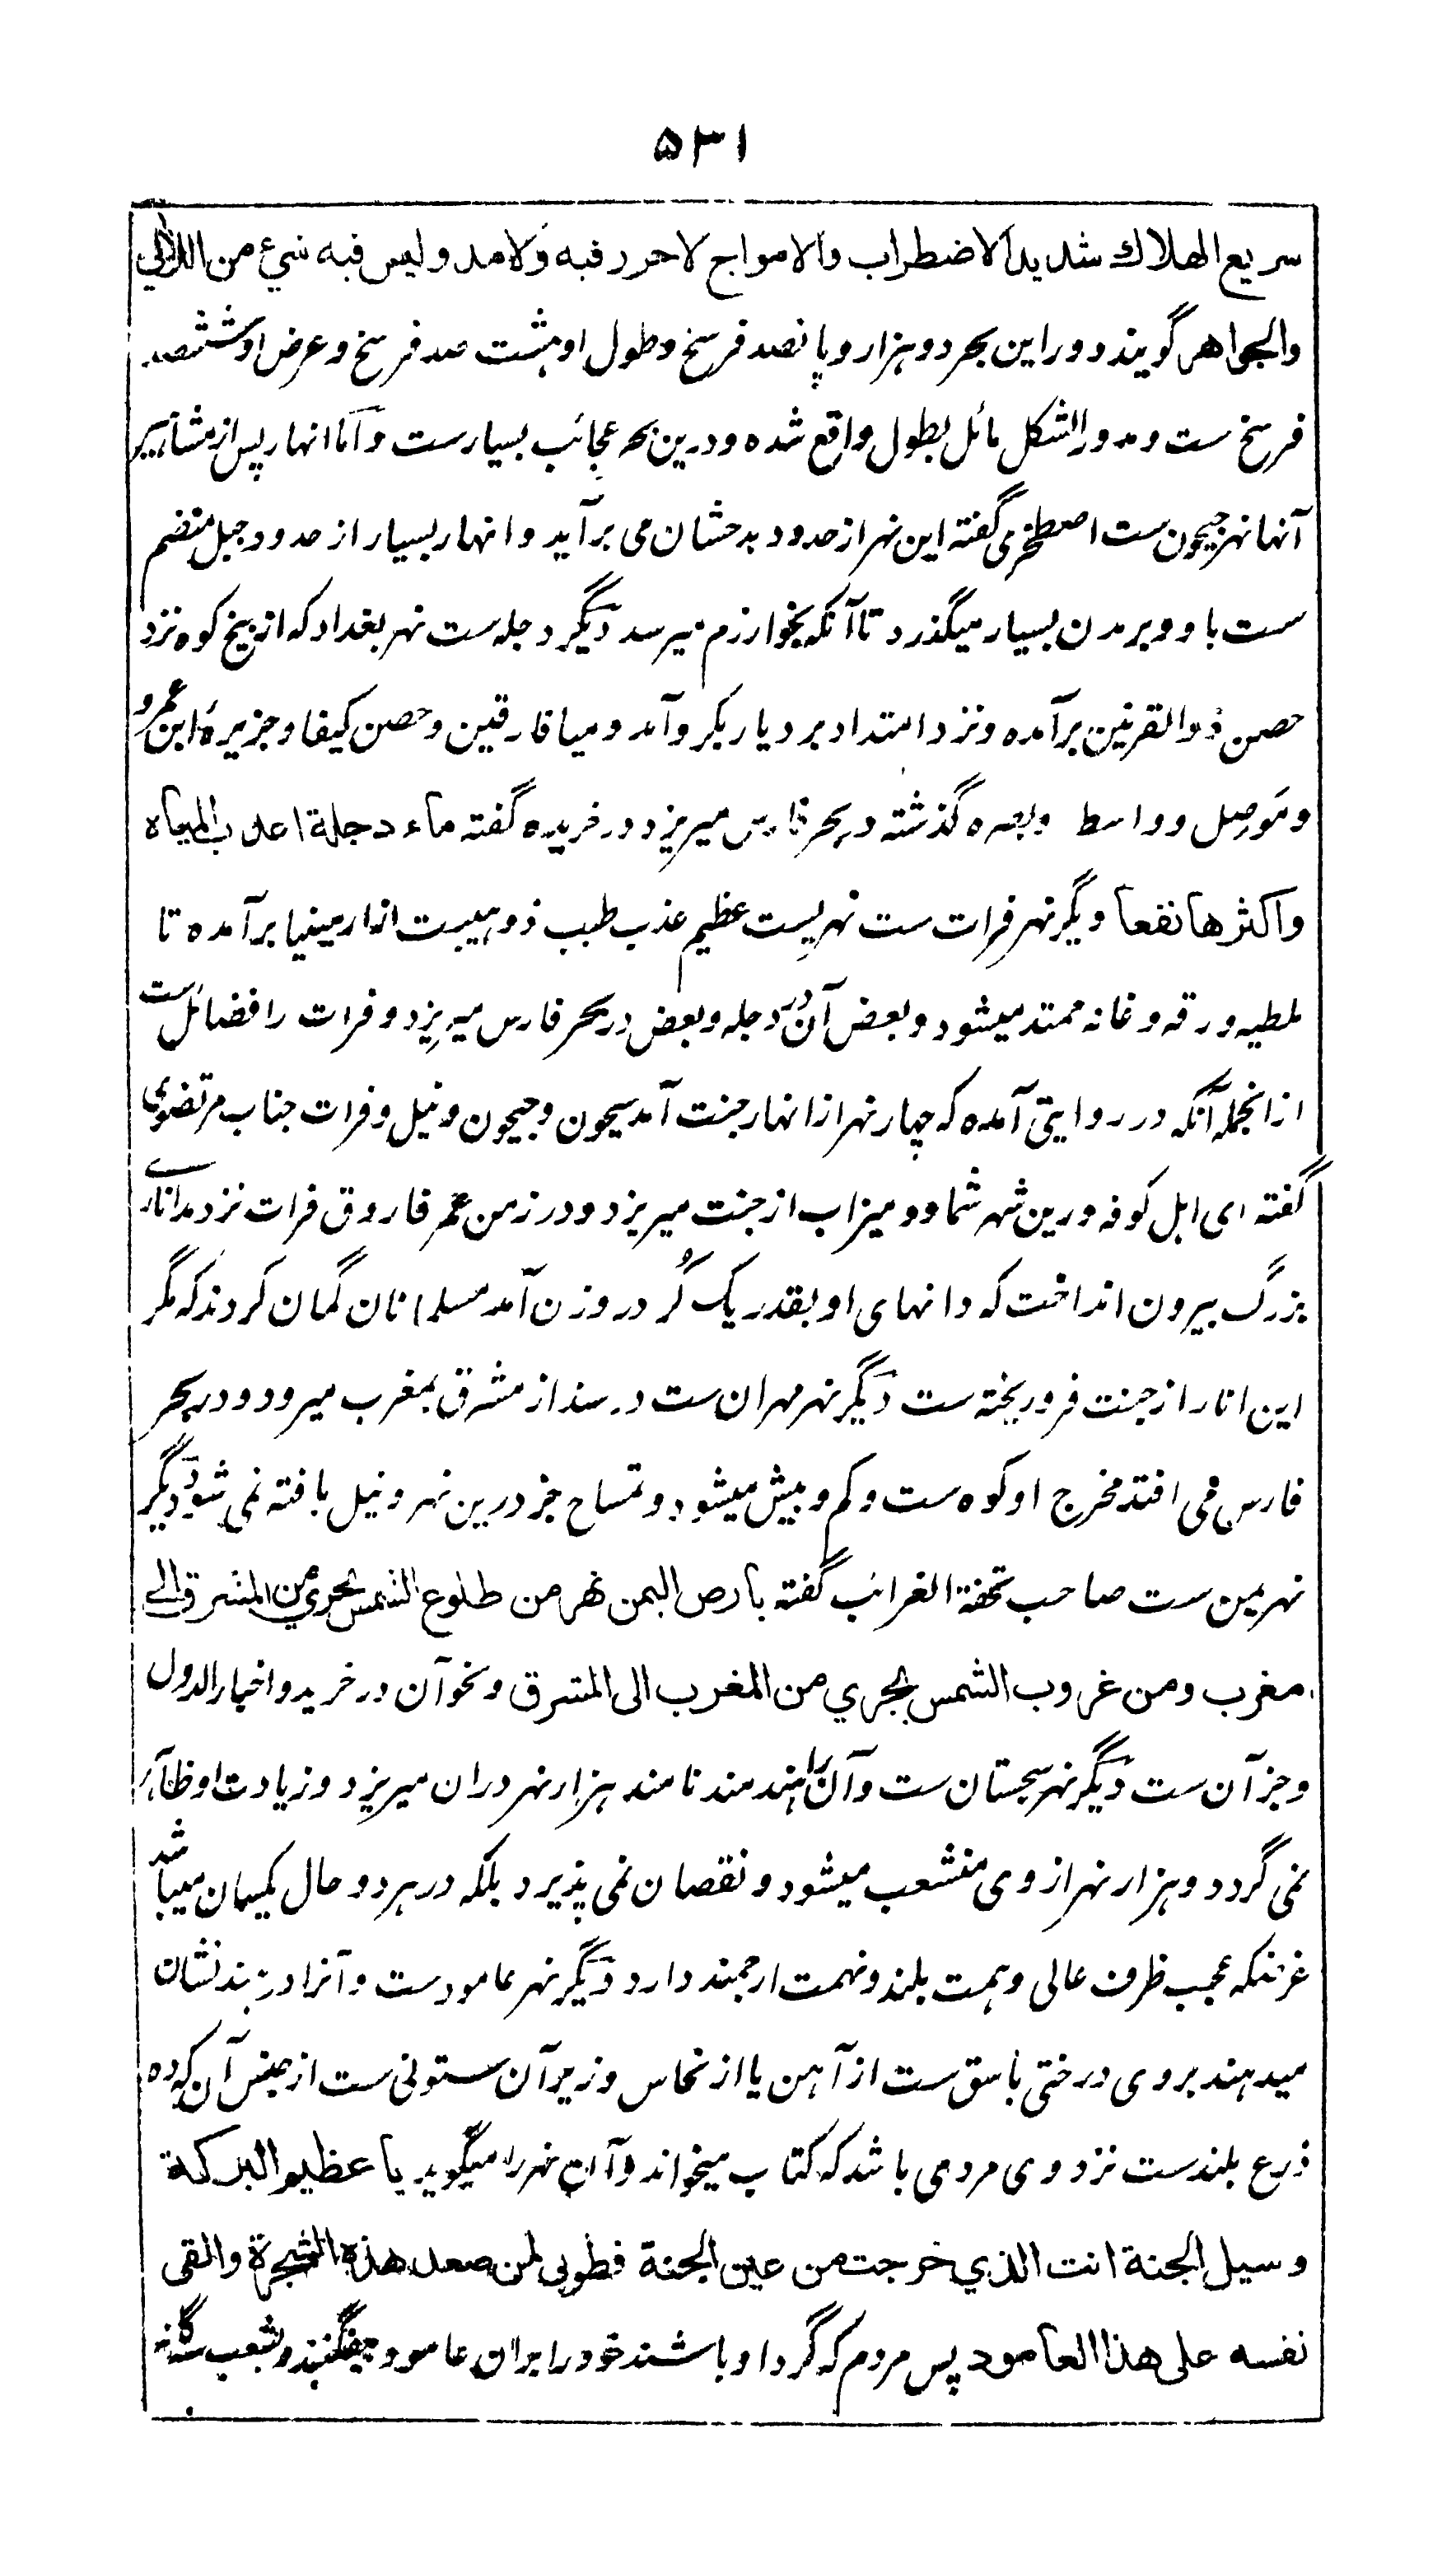 ۵۳۱
سریع الهلاک شدید الاضطراب والامواج لا جزر فیه ولا مد ولیس فیه شيء من اللآلي
والجواهر گویند دور این بحر دو هزار و پانصد فرسخ و طول او هشت صد فرسخ و عرض او ششصد
فرسخ ست و مدور الشکل مائل بطول واقع شده و درین بحر عجائب بسیارست و اما انهار پس از مشاهیر
آنها نهر جیحون ست اصطخری گفته این نهر از حدود بدخشان می برآید و انهار بسیار از حدود جبل منضم
ست با و و بر مدن بسیار میگذرد تا آنکه بخوارزم میرسد دیگر دجله ست نهر بغداد که از بیخ کوه نزد
حصن ذوالقرنین برآمده و نزد امتداد بر دیار بکر و آمد و میافارقین و حصن کیفا و جزیرهٔ ابن عمرو
و موصل و واسط و بصره گذشته در بحر فارس میریزد در خریده گفته ماء دجلة اعذب المیاه
واکثرها نفعا دیگر نهر فرات ست نهریست عظیم عذب طیب ذو هیبت از ارمینیا برآمده تا
ملطیه و رقه و غانه ممتد میشود و بعض آن در دجله و بعض در بحر فارس میریزد و فرات را فضائل ست
ازانجمله آنکه در روایتی آمده که چهار نهر از انهار جنت آمد سیحون و جیحون و نیل و فرات جناب مرتضوی
گفته ای اهل کوفه درین شهر شما دو میزاب از جنت میریزد و در زمن عمر فاروق فرات نزد مد اناری
بزرگ بیرون انداخت که دانهای او بقدر یک کُر در وزن آمد مسلمانان گمان کردند که مگر
این انار از جنت فرو ریخته ست دیگر نهر مهران ست در سند از مشرق بمغرب میرود و در بحر
فارس می افتد مخرج او کوه ست و کم و بیش میشود و تمساح جز درین نهر و نیل یافته نمی شود دیگر
نهر یمن ست صاحب تحفة الغرائب گفته بارض الیمن نهر من طلوع الشمس یجري من المشرق الی
مغرب ومن غروب الشمس یجري من المغرب الی المشرق و نحو آن در خریده و اخبار الدول
و جز آن ست دیگر نهر سجستان ست و آن را هندمند نامند هزار نهر دران میریزد و زیادت او ظاهر
نمی گردد و هزار نهر از وی منشعب میشود و نقصان نمی پذیرد بلکه در هر دو حال یکسان میباشد
غرضکه عجب ظرف عالی و همت بلند و نهمت ارجمند دارد دیگر نهر عامودست و آنرا در هند نشان
میدهند بر وی درختی باسق ست از آهن یا از نحاس و زیر آن ستونی ست از جنس آن که ده
ذرع بلندست نزد وی مردمی باشد که کتاب میخواند و آن نهر را میگوید یا عظیم البرکة
وسبیل الجنة انت الذي خرجت من عین الجنة فطوبی لمن صعد هذه الشجرة والقی
نفسه علی هذا العامود پس مردم که گرد او باشند خود را بران عامود میفگنند و بشعب